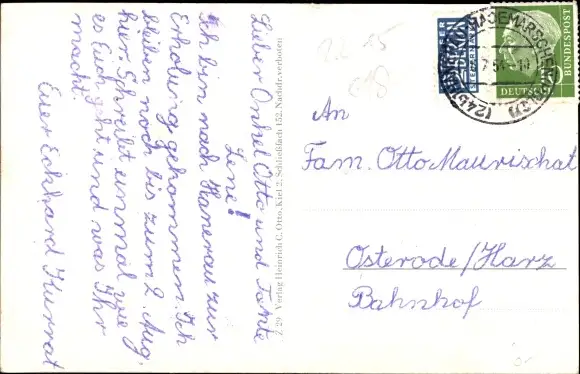 Lieber Onkel Otto und Tante
Lene!
Ich bin nach Hanerau zur
Erholung gekommen. Ich
bleiben noch bis zum 2. Aug.
hier. Schreibt einmal, wie
es Euch geht und was Ihr
macht.
Euer Eckhard Kurrat
Z 29 Verlag Heinrich C. Otto, Kiel 2, Schließfach 152. Nachdr. verboten
22 15
618
NOTOPFER
BERLIN
STEUERMARKE
HADEMARSCHEN
(24b)
7.54
DEUTSCHE
BUNDESPOST
An
Fam. Otto Maurischat
Osterode/Harz
Bahnhof